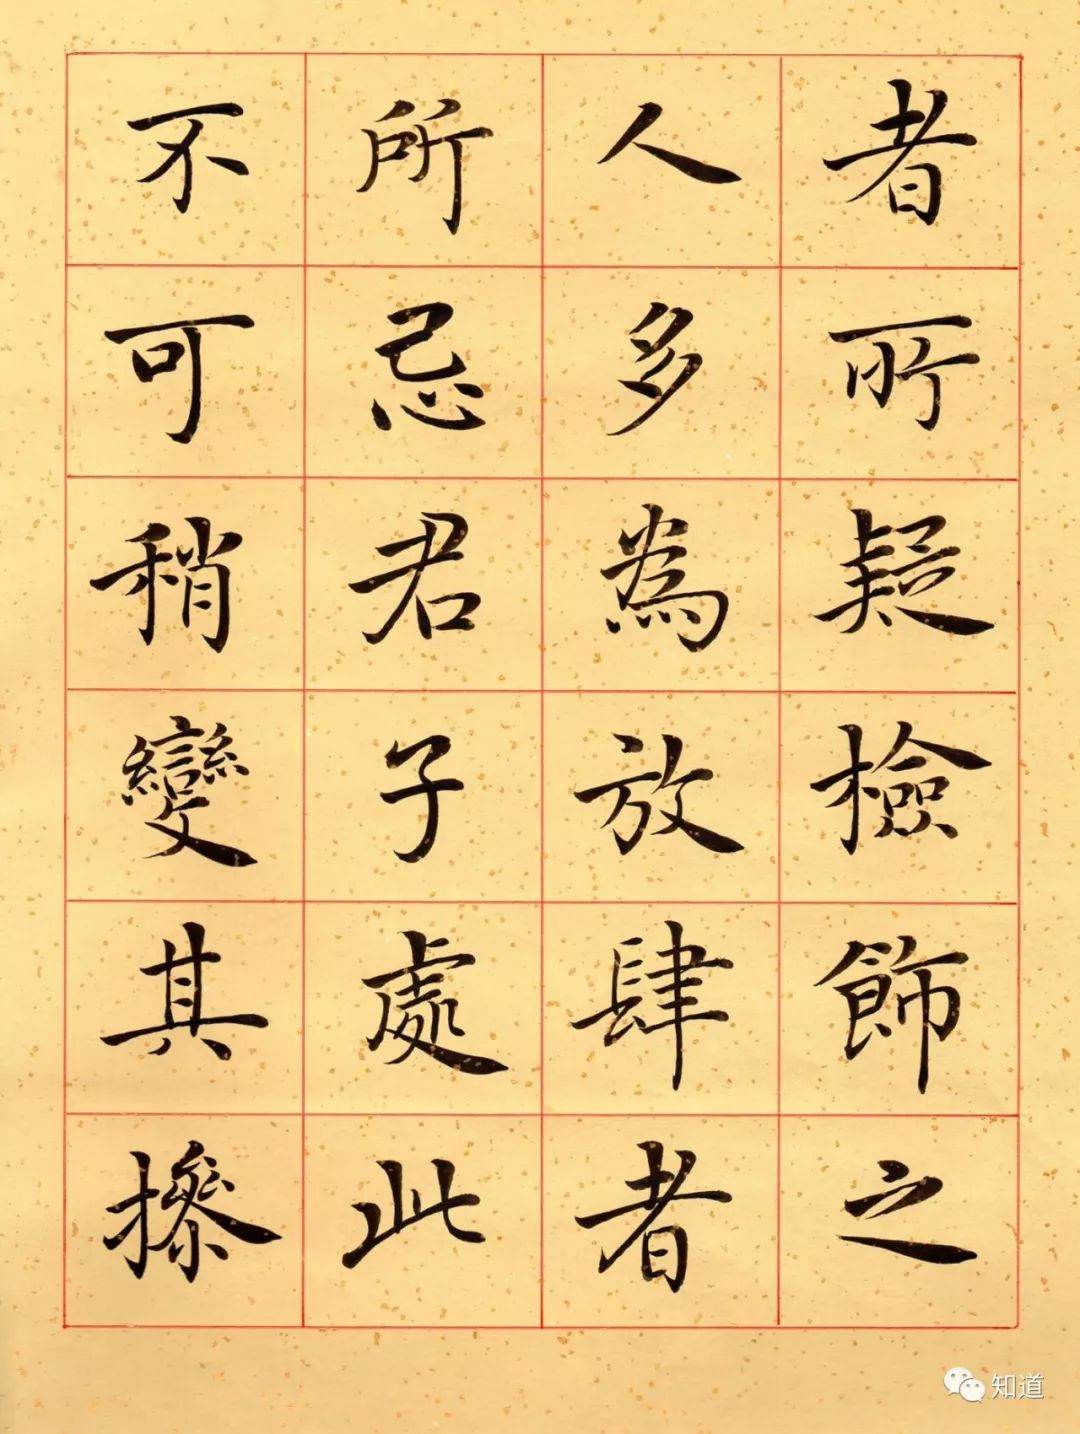 者所疑檢飾之
人多為放肆者
所忌君子處此
不可稍變其操
知道